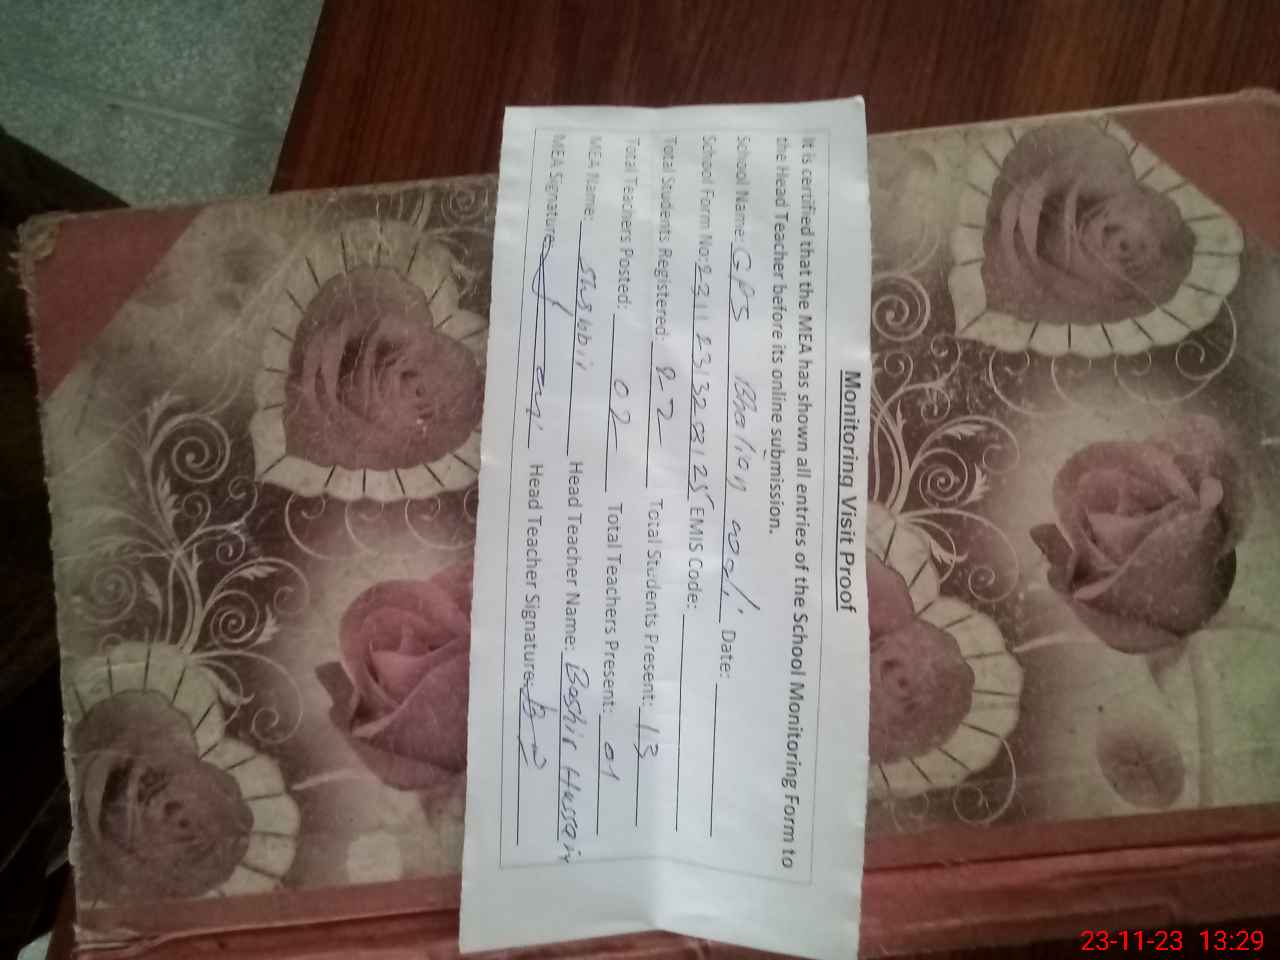 Monitoring Visit Proof
It is certified that the MEA has shown all entries of the School Monitoring Form to
the Head Teacher before its online submission.
School Name: GPS Bhalian Date:
School Form No: EMIS Code:
Total Students Registered: 22 Total Students Present: 13
Total Teachers Posted: 02 Total Teachers Present: 01
MEA Name: Shabbir Head Teacher Name: Bashir Hussain
MEA Signature: Head Teacher Signature:
23-11-23 13:29